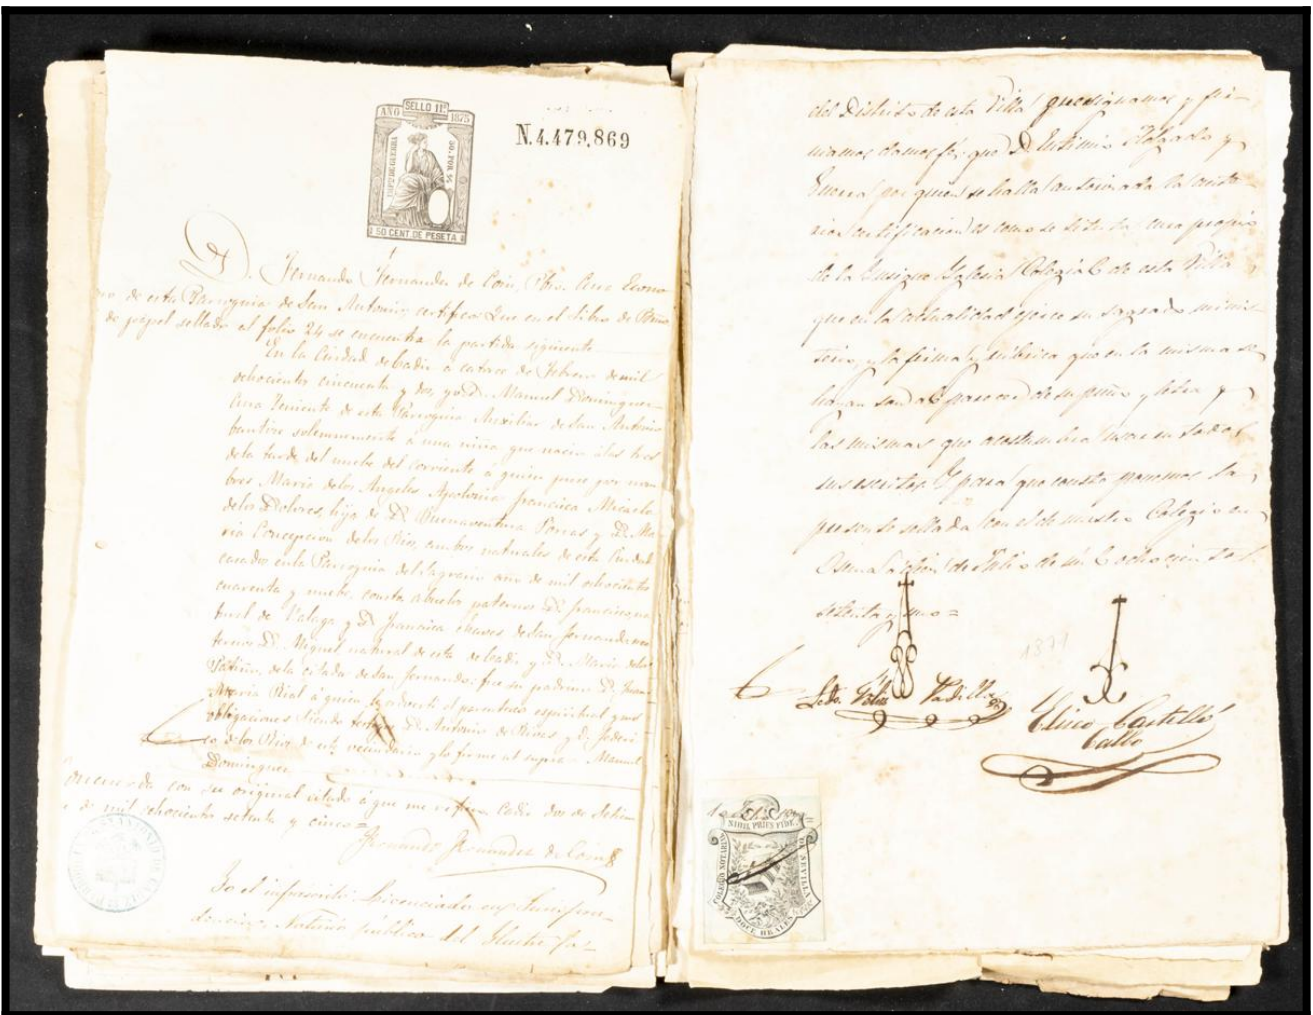 SELLO 11º
AÑO 1875
IMPTO DE GUERRA
50 POR %
50 CENT. DE PESETA
N.4.479,869
D. Fernando Fernandez de Coin, Pbro. Cura Econo
mo de esta Parroquia de San Antonio, certifico: Que en el libro de
de papel sellado al folio 24 se encuentra la partida siguiente
En la Ciudad de Cadiz a catorce de Febrero de mil
ochocientos cincuenta y dos, yo D. Manuel Dominguez
Cura Teniente de esta Parroquia Auxiliar de San Antonio
bautize solemnemente á una niña que nació á las tres
de la tarde del nuebe del corriente á quien puse por nom
bres Maria de los Angeles Apolonia Francisca Micaela
de los Dolores, hija de Dn. Buenaventura Porcas y Da. Ma
ria Concepcion de los Rios, ambos naturales de esta Ciudad
casados en la Parroquia del Sagrario año de mil ochocientos
cuarenta y nuebe, abuelos paternos Dn. Francisco, na
tural de Malaga y Da. Francisca Chaves de San Fernando, ma
ternos Dn. Miguel natural de esta de Cadiz y Da. Maria de la
de la citada de San Fernando: fue su padrino Dn. Juan
Maria Rial á quien le advertí el parentesco espiritual y sus
obligaciones siendo testigos Dn. Antonio de Rivas y Dn. Federi
co de los Rios de este vecindario y lo firmé ut supra = Manuel
Dominguez
Concuerda con su original citado á que me refiero. Cadiz dos de
de mil ochocientos setenta y cinco =
Fernando Fernandez de Coin
Yo el infrascrito Licenciado en Jurispru
dencia, Notario público del Ilustre
del Distrito de esta Villa que signamos y fir-
mamos damos fé: que D. Holgado y
Guerra por quien se halla autorizada la ante-
rior certificacion es como se titula cura propio
de la Insigne Iglesia Colegial de esta Villa,
que en la actualidad ejerce su sagrado minis-
terio, y la firma y rúbrica que en la misma se
hallan son al parecer de su puño y letra y
las mismas que acostumbra usar en todos
sus escritos. Y para que conste ponemos la
presente sellada con el de nuestro Colegio en
Osuna á de Julio de mil ochocientos
setenta y uno =
1871
Ldo. Vadillo
Castelló
Calbo
NIHIL PRIUS FIDE
COLEGIO NOTARIAL
DE SEVILLA
DOCE REALES